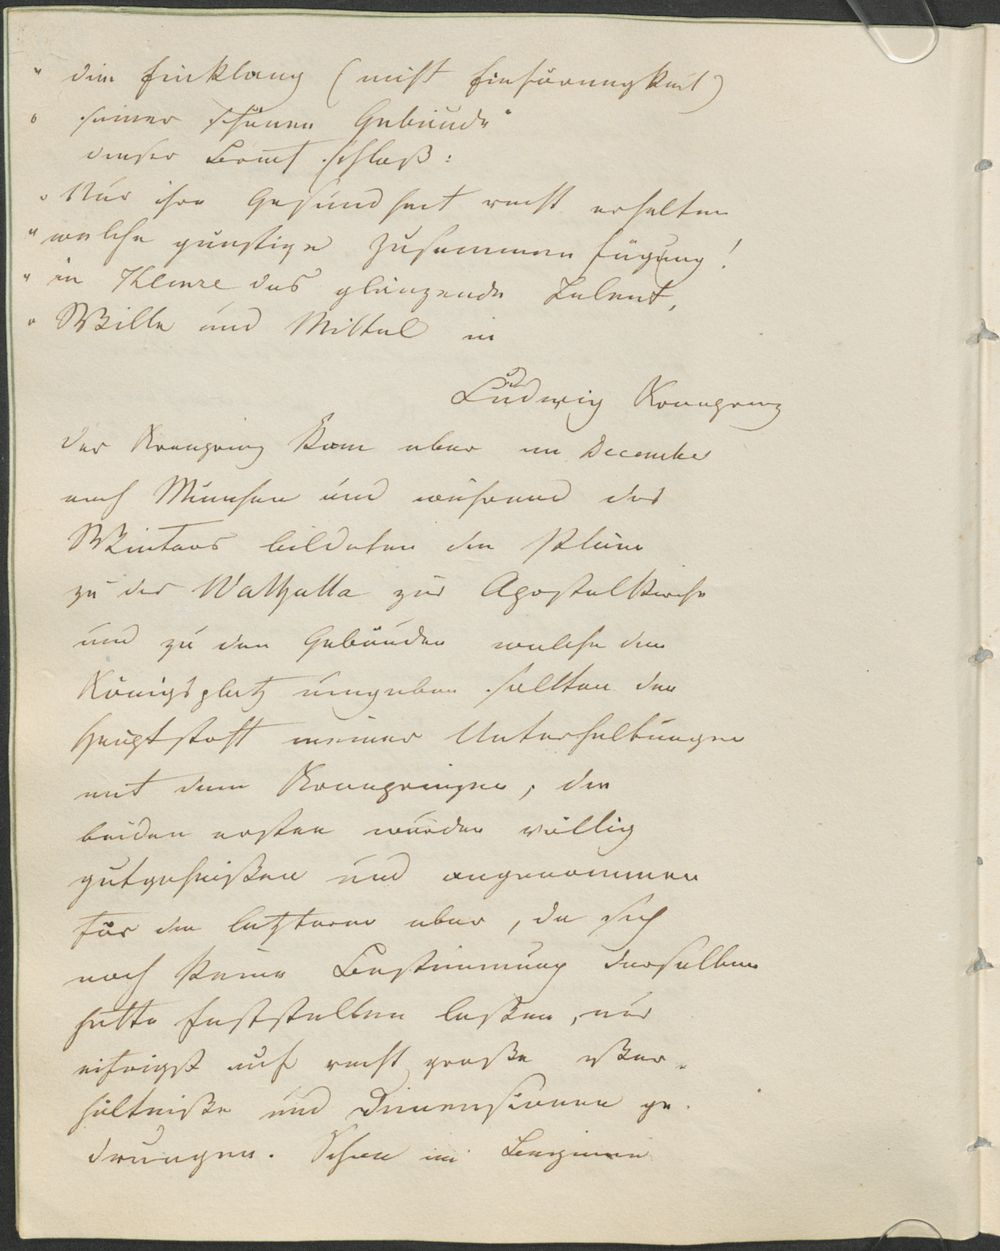 " den Einklang (nicht Einförmigkeit)
" seiner schönen Gebäude"
dieser Brief schloß:
" Nur ihre Gesundheit recht erhalten
" welche günstige Zusammenfügung!
" in Klenze das glänzende Talent,
" Wille und Mittel in
Ludwig Kronprinz
Der Kronprinz kam aber im December
nach München und während des
Winters bildeten die Pläne
zu der Walhalla zur Apostelkirche
und zu den Gebäuden welche den
Königsplatz umgeben sollten den
Hauptstoff meiner Unterhaltungen
mit dem Kronprinzen, die
beiden ersten wurden völlig
gutgeheißen und angenommen
für die letzteren aber, da sich
noch keine Bestimmung derselben
hatte feststellen laßen, nur
eifrigst auf recht große Ver-
hältniße und Dimensionen ge-
drungen. Schon im Beginnen